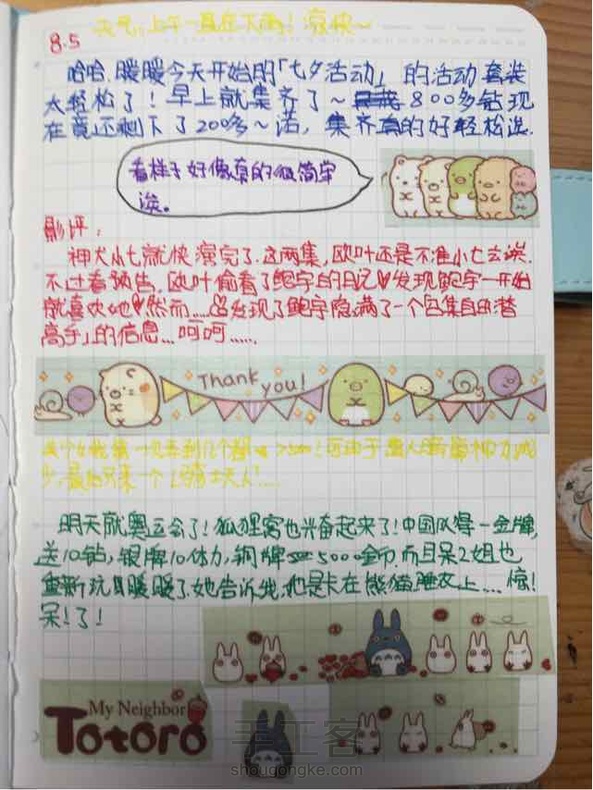 8.5
天气:上午一直在下雨!凉快~
哈哈,暖暖今天开始的「七夕活动」的活动套装
太轻松了!早上就集齐了~ 800多钻现
在竟还剩下了200多~诺,集齐真的好轻松说.
看样子好像真的很简单
诶。
影评:
神犬小七就快演完了.这两集,欧叶还是不准小七玄谈.
不过看预告,欧叶偷看了鲍宇的日记♥发现鲍宇一开始
就喜欢她♥然而……发现了鲍宇隐满了一个
高手」的信息…呵呵……
Thank you!
明天就奥运会了!狐狸窝也兴奋起来了!中国队得一金牌,
送10钻,银牌10体力,铜牌5000金币而且呆2姐也
重新玩暖暖了她告诉我,她是卡在熊猫睡衣上…惊!
呆!了!
My Neighbor
Totoro
手工客
shougongke.com